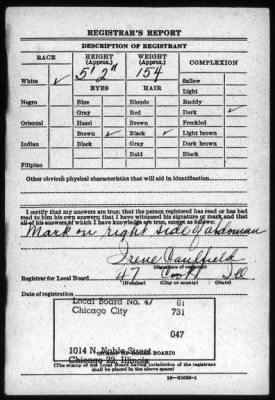 REGISTRAR'S REPORT
DESCRIPTION OF REGISTRANT
RACE HEIGHT (Approx.) WEIGHT (Approx.) COMPLEXION
White ✓ 5' 2" 154 Sallow
EYES HAIR Light
Negro Blue Blonde Ruddy
Gray Red Dark ✓
Oriental Hazel Brown Freckled
Brown ✓ Black ✓ Light brown
Indian Black Gray Dark brown
Bald Black
Filipino
Other obvious physical characteristics that will aid in identification
I certify that my answers are true; that the person registered has read or has had
read to him his own answers; that I have witnessed his signature or mark and that
all of his answers of which I have knowledge are true, except as follows:
Mark on right side of abdoman
Irene Caulfield
(Signature of registrar)
Registrar for Local Board 47 Cook Ill
(Number) (City or county) (State)
Date of registration
Local Board No. 47 61
Chicago City 731
047
1014 N. Noble Street
Chicago 22, Illinois
(STAMP OF LOCAL BOARD)
(The stamp of the Local Board having jurisdiction of the registrant
shall be placed in the above space)